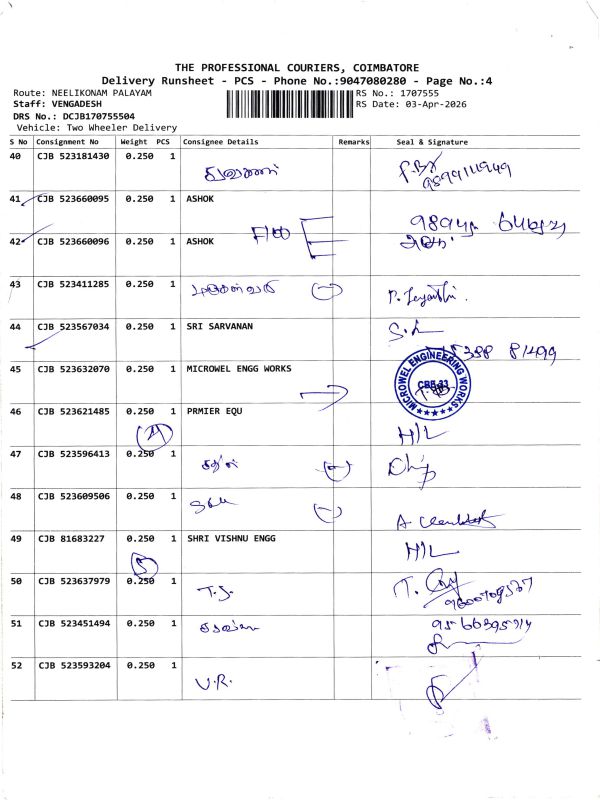 THE PROFESSIONAL COURIERS, COIMBATORE
Delivery Runsheet - PCS - Phone No.:9047080280 - Page No.:4
Route: NEELIKONAM PALAYAM RS No.: 1707555
Staff: VENGADESH RS Date: 03-Apr-2026
DRS No.: DCJB170755504
Vehicle: Two Wheeler Delivery
S No Consignment No Weight PCS Consignee Details Remarks Seal & Signature
40 CJB 523181430 0.250 1
41 CJB 523660095 0.250 1 ASHOK
42 CJB 523660096 0.250 1 ASHOK
43 CJB 523411285 0.250 1 P. Jeyanthi.
44 CJB 523567034 0.250 1 SRI SARVANAN
45 CJB 523632070 0.250 1 MICROWEL ENGG WORKS MICROWEL ENGINEERING WORKS
46 CJB 523621485 0.250 1 PRMIER EQU H/L
47 CJB 523596413 0.250 1
48 CJB 523609506 0.250 1
49 CJB 81683227 0.250 1 SHRI VISHNU ENGG H/L
50 CJB 523637979 0.250 1 T.S.
51 CJB 523451494 0.250 1
52 CJB 523593204 0.250 1 V.R.